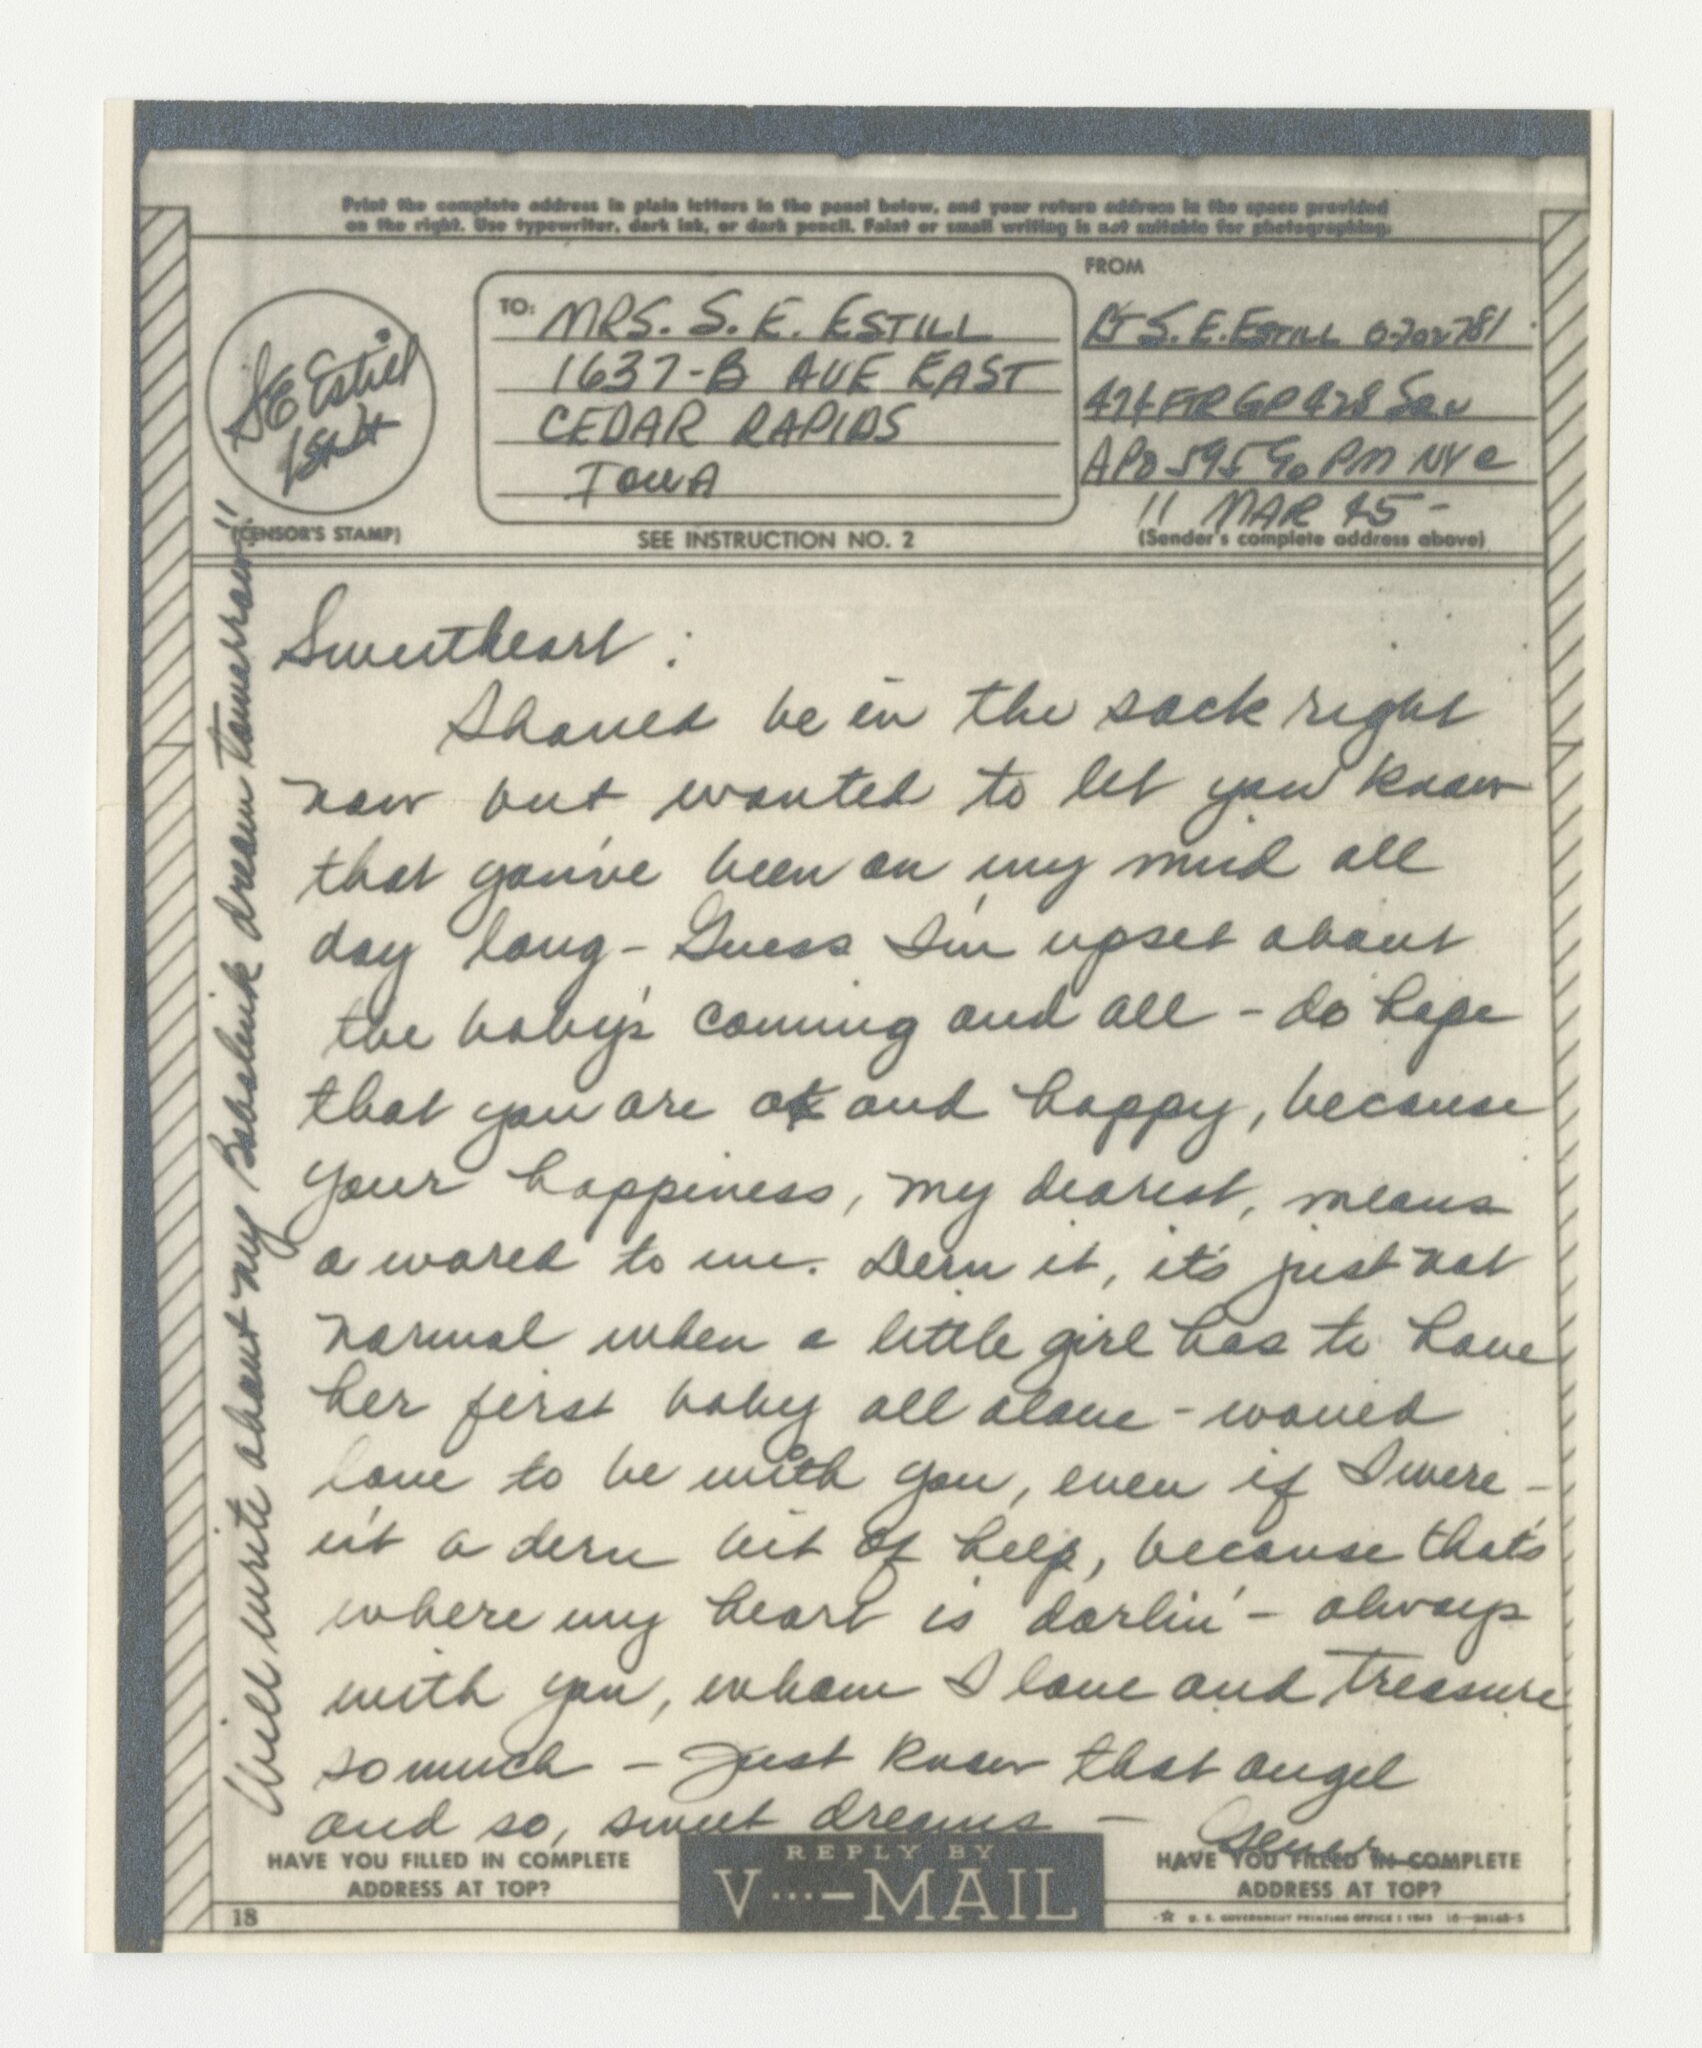 Print the complete address in plain letters in the panel below, and your return address in the space provided
on the right. Use typewriter, dark ink, or dark pencil. Faint or small writing is not suitable for photographing.
S E Estill
1st Lt
(CENSOR'S STAMP)
TO:
MRS. S. E. ESTILL
1637-B AVE EAST
CEDAR RAPIDS
IOWA
SEE INSTRUCTION NO. 2
FROM
LT S. E. ESTILL O-702781
474 FTR GP 428 SQN
APO 595 % PM NYC
11 MAR 45-
(Sender's complete address above)
Sweetheart:
Should be in the sack right
now but wanted to let you know
that you've been on my mind all
day long - Guess I'm upset about
the baby's coming and all - do hope
that you are ok and happy, because
your happiness, my dearest, means
a world to me. Dern it, it's just not
normal when a little girl has to have
her first baby all alone - would
love to be with you, even if I were-
n't a dern bit of help, because that's
where my heart is darlin' - always
with you, whom I love and treasure
so much - Just know that angel
and so, sweet dreams -
Will write about my dream tomorrow!!
HAVE YOU FILLED IN COMPLETE
ADDRESS AT TOP?
REPLY BY
V···—MAIL
HAVE YOU FILLED IN COMPLETE
ADDRESS AT TOP?
18
☆ U. S. GOVERNMENT PRINTING OFFICE : 1943